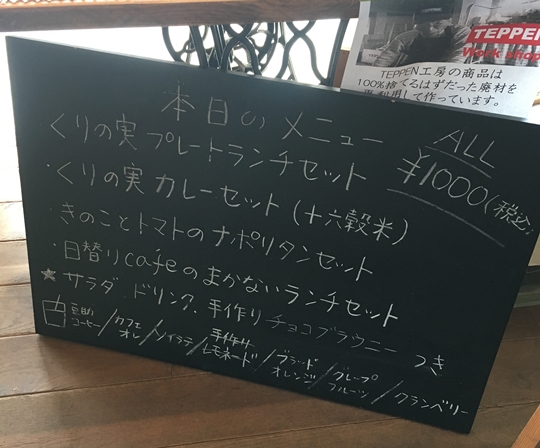 TEPPEN
Work shop
TEPPEN工房の商品は
100%捨てるはずだった廃材を
再利用して作っています。
本日のメニュー
ALL
¥1000(税込)
くりの実プレートランチセット
・くりの実カレーセット(十六穀米)
・きのことトマトのナポリタンセット
・日替りcafeのまかないランチセット
★サラダ、ドリンク、手作りチョコブラウニーつき
コーヒー/カフェオレ/ソイラテ/手作りレモネード/ブラッドオレンジ/グレープフルーツ/クランベリー